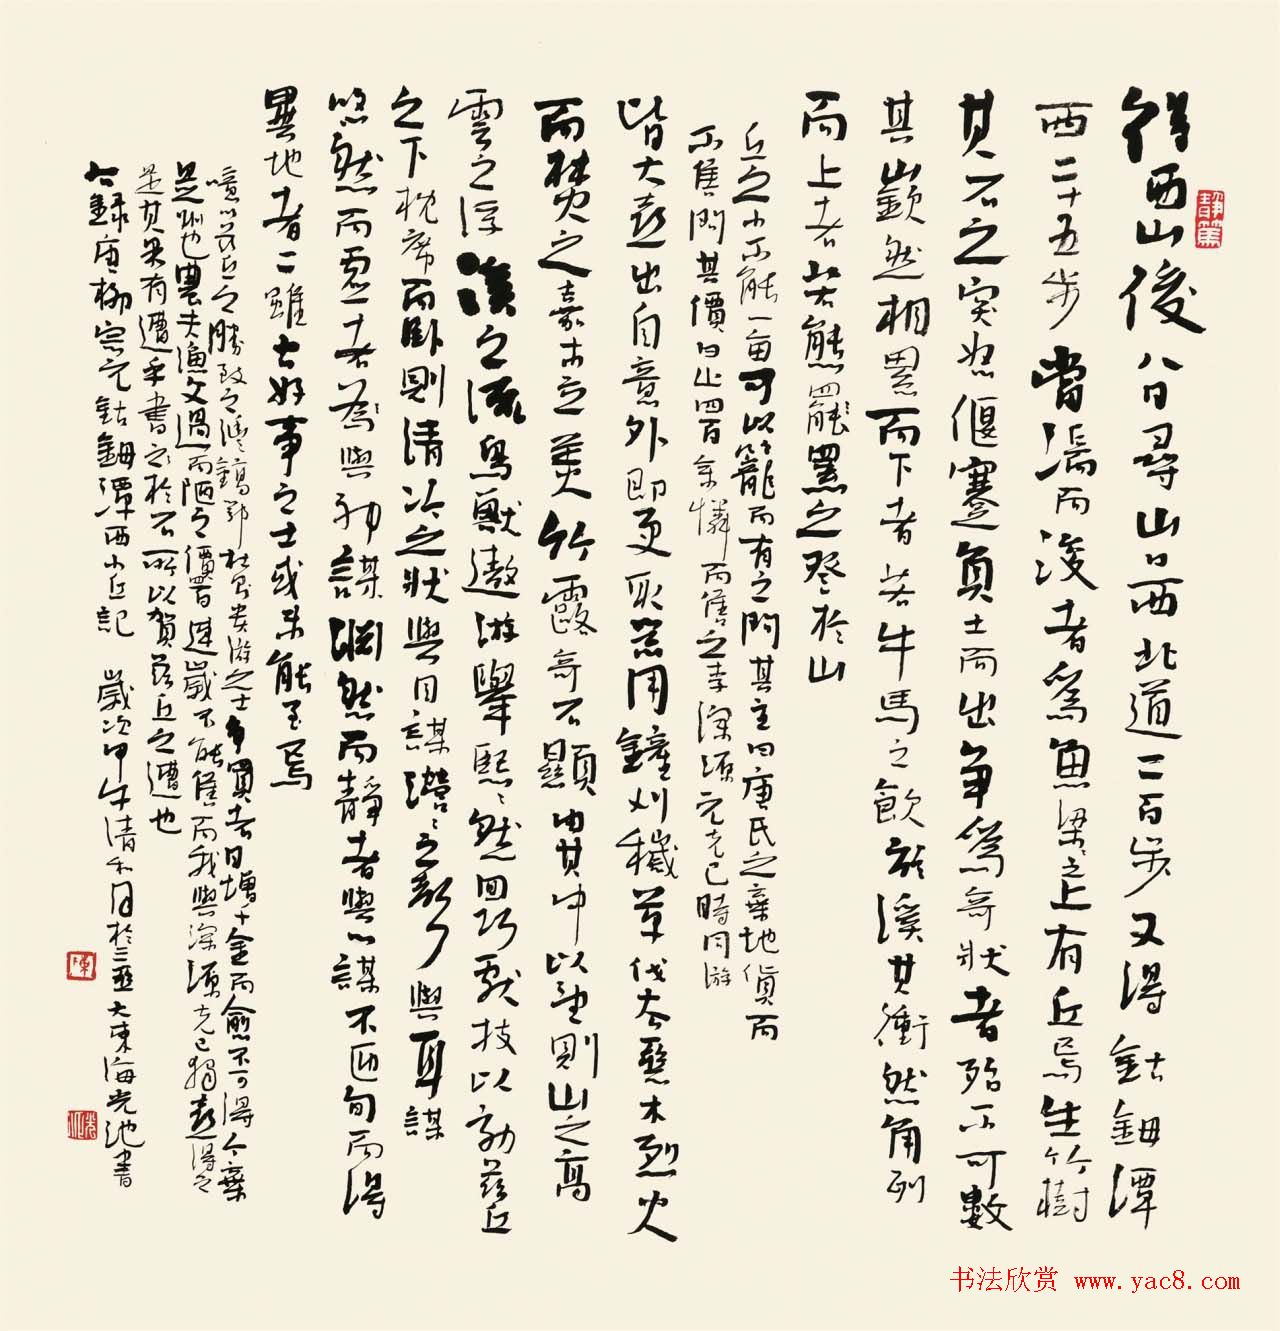 得西山後八日尋山口西北道二百步又得鈷鉧潭
西二十五步當湍而浚者為魚梁梁之上有丘焉生竹樹
其石之突怒偃蹇負土而出爭為奇狀者殆不可數
其嶔然相累而下者若牛馬之飲於溪其衝然角列
而上者若熊羆之登於山
丘之小不能一畝可以籠而有之問其主曰唐氏之棄地貨而
不售問其價曰止四百余憐而售之李深源元克己時同游
皆大喜出自意外即更取器用鏟刈穢草伐去惡木烈火
而焚之嘉木立美竹露奇石顯由其中以望則山之高
雲之浮溪之流鳥獸遨游舉熙々然回巧獻技以効茲丘
之下枕席而卧則清泠之狀與目謀瀯々之聲與耳謀
悠然而虛者為與神謀淵然而靜者與心謀不匝旬而得
異地者二雖古好事之士或未能至焉
噫以茲丘之勝致之灃鎬鄠杜則貴游之士爭買者日增千金而愈不可得今棄
是州也農夫漁父過而陋之價四百連歲不能售而我與深源克己獨喜得之
是其果有遭乎書之於石所以賀茲丘之遭也
右錄唐柳宗元鈷鉧潭西小丘記 歲次甲午清和月於三亞大東海光池書
靜篤
陳
书法欣赏 www.yac8.com